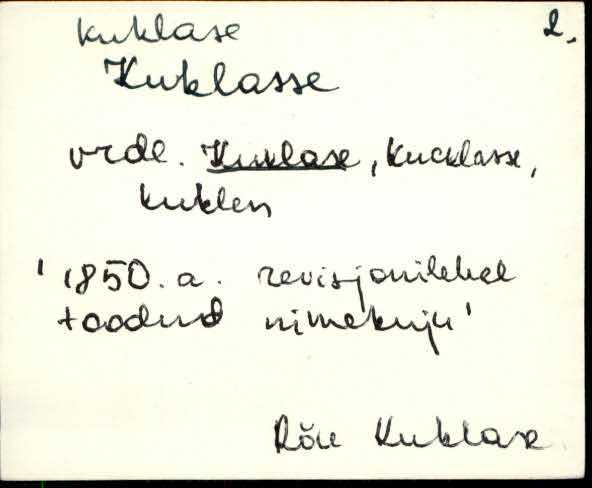 kuklase 2.
Kuklasse
vrdl. Kuklase, Kucklasse,
Kuklen
' 1850. a. revisjonilehel
toodud nimekuju'
Rõu Kuklase